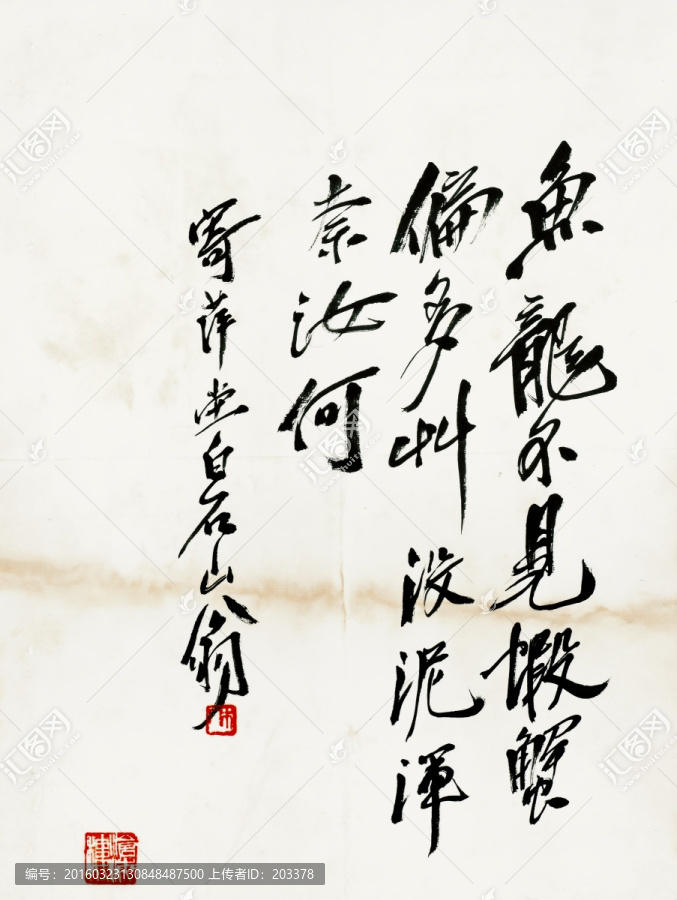 魚龍不見蝦蟹
偏多艸没泥渾
柰汝何
寄萍堂白石山翁
木
汇图网
www.huitu.com
编号：20160323130848487500 上传者ID：203378